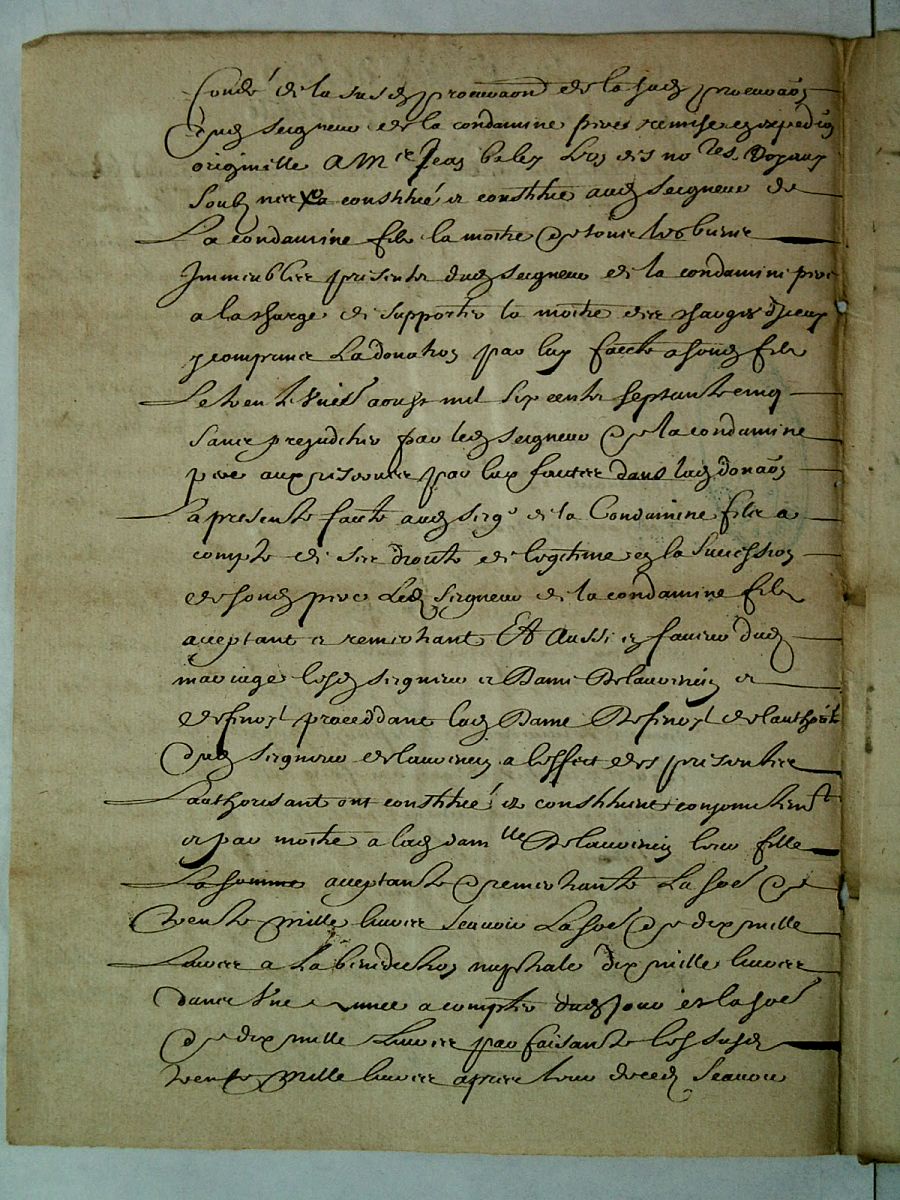 fondé de la susd procuraon de la sud procuraon
dud seigneur de la condamine pere remise en expedion
originelle a Mre Jean un des nores Royaux
soubz nes a constitué et constitue aud seigneur de
La condamine fils la moitié de tous les biens
Immeubles presents dud seigneur de la condamine pere
a la charge de supporter la moitié des charges diceux
y comprins La donation par luy faicte a soud fils
Le trente Unie aoust mil six cents septante cinq
sans prejudicier par led seigneur de la condamine
pere aux reserves par luy faictes dans lad donaon
La presente faicte aud seigr de la Condamine fils a
compte de ses droits de legitime en la succession
de soud pere Led seigneur de la condamine fils
acceptant et remerciant Et Aussi en faveur dud
mariage lesd seigneur et Dame De et
de procedant lad Dame De de lauthorité
dud seigneur de a leffect des presentes
Lauthorisant ont constitué et constituent conjointemt
et par moitié a lad damlle De leur fille
La somme acceptante et remerciante La soe de
trente mille livres scavoir La soe de dix mille
Livres a La benediction nuptiale dix mille livres
dans Une annee a compter dud jour et la soe
de dix mille Livres par faisant les susd
trente mille livres apres leur deces scavoir